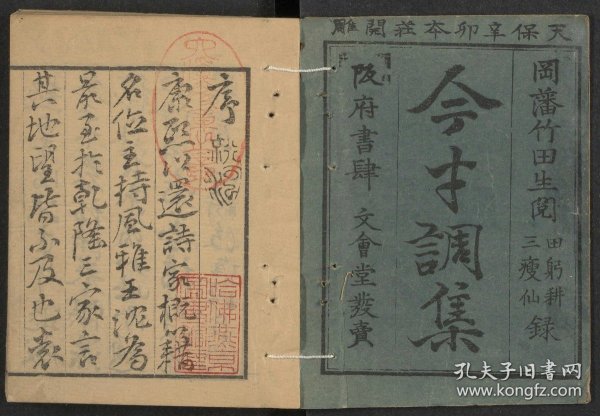 天保辛卯夲莊開雕
岡藩竹田生閲
田躬耕
三瘦仙
錄
今才調集
阪府書肆 文會堂發賣
序
康熙以還詩家概籍
名位主持風雅王沈為
最至於乾隆三家言
其地望皆不及也袁
孔夫子旧书网
www.kongfz.com